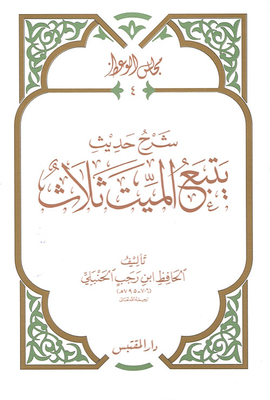 مجالس الوعظ
٤
شَرْحُ حَدِيْثِ
يَتْبَعُ المَيِّتَ ثَلَاثٌ
تَأليفُ
الحَافِظِ ابنِ رَجَبٍ الحَنْبَليِّ
(٧٠٦-٧٩٥هـ)
رَحِمَهُ اللهُ تَعَالَى
دار المقتبس